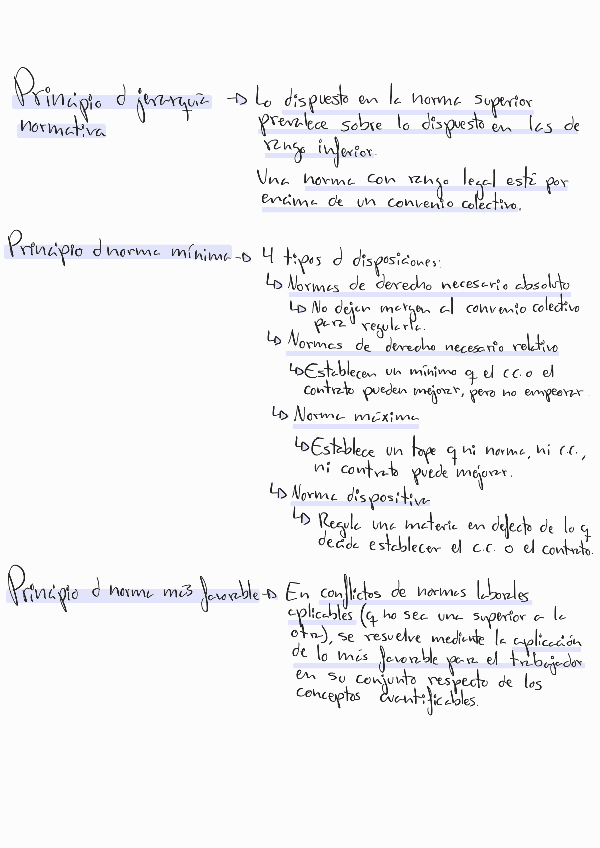 Principio d jerarquía → Lo dispuesto en la norma superior
normativa
prevalece sobre lo dispuesto en las de
rango inferior.
Una norma con rango legal está por
encima de un convenio colectivo.
Principio d norma mínima → 4 tipos d disposiciones:
↳ Normas de derecho necesario absoluto
↳ No dejan margen al convenio colectivo
para regularla.
↳ Normas de derecho necesario relativo
↳ Establecen un mínimo q el c.c. o el
contrato pueden mejorar, pero no empeorar.
↳ Norma máxima
↳ Establece un tope q ni norma, ni c.c.,
ni contrato puede mejorar.
↳ Norma dispositiva
↳ Regula una materia en defecto de lo q
decida establecer el c.c. o el contrato.
Principio d norma más favorable → En conflictos de normas laborales
aplicables (q no sea una superior a la
otra), se resuelve mediante la aplicación
de lo más favorable para el trabajador
en su conjunto respecto de los
conceptos cuantificables.